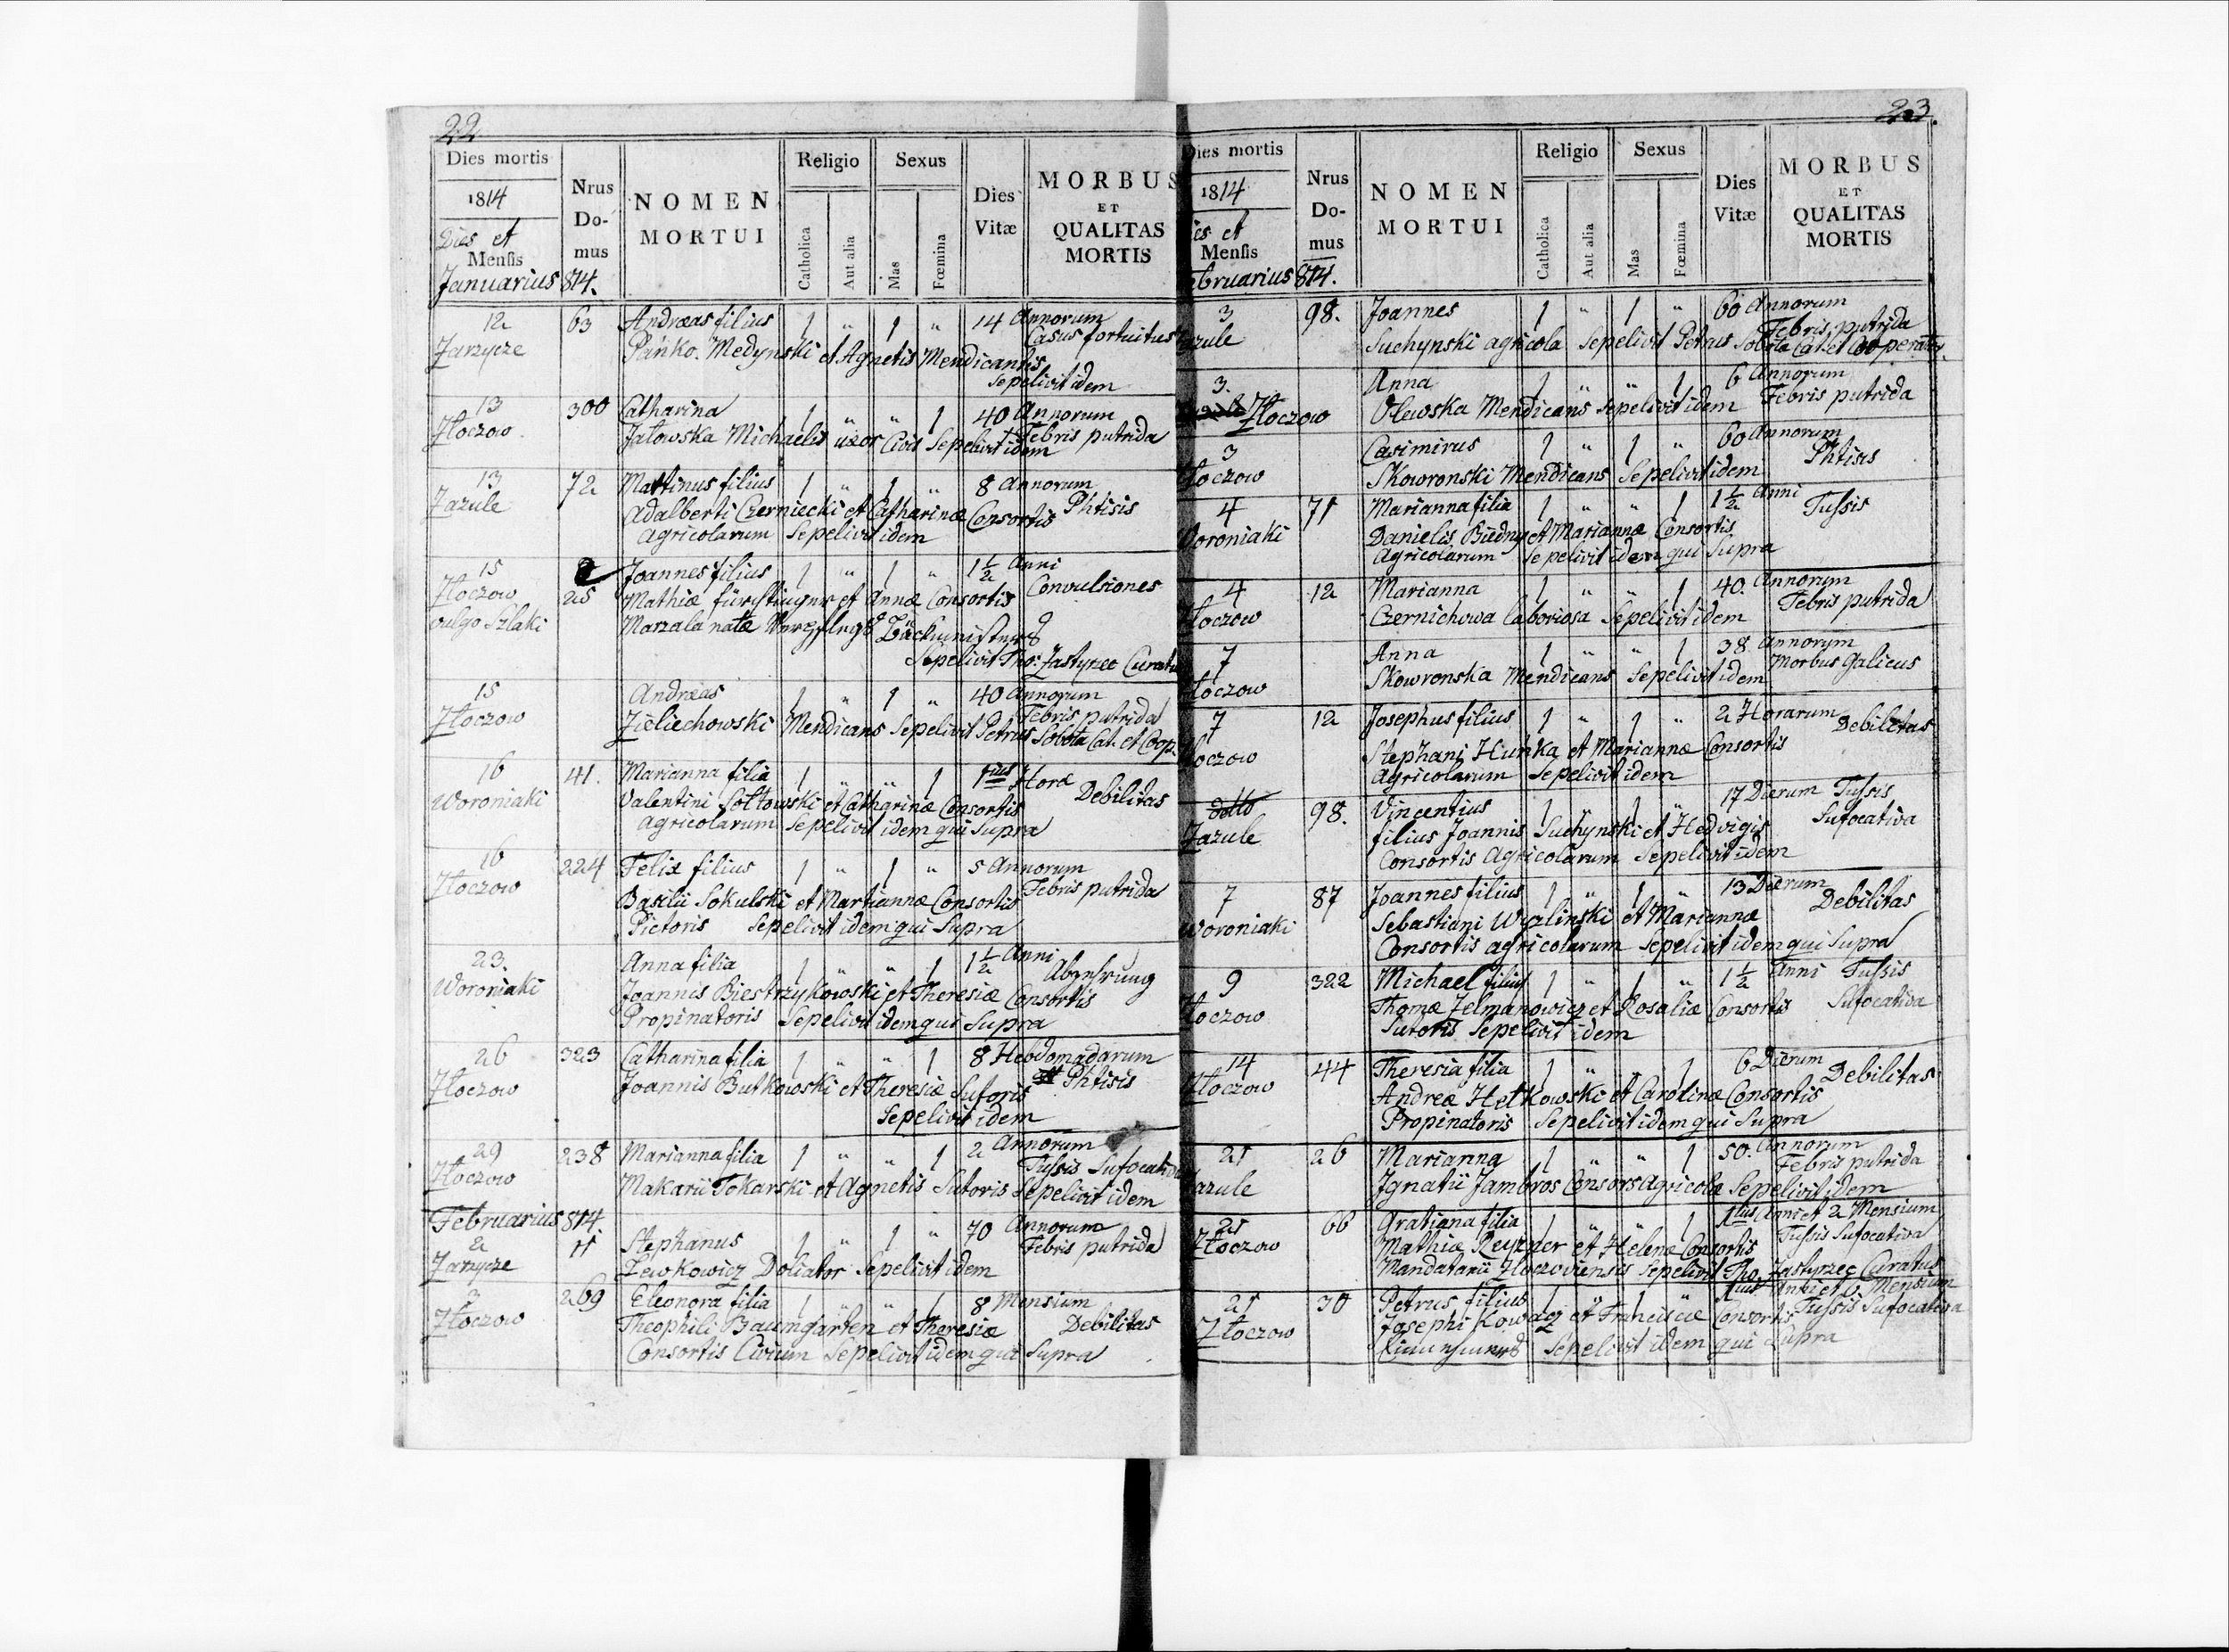 22
Dies mortis
1814
Dies et
Mensis
Januarius 814.
Nrus
Do-
mus
NOMEN
MORTUI
Religio
Catholica
Aut alia
Sexus
Mas
Fœmina
Dies
Vitæ
MORBUS
ET
QUALITAS
MORTIS
12 63 Andreas filius 1 " 1 " 14 Annorum
Zarzycze Pańko Medynski et Agnetis Mendicantis Casus fortuitus
Sepelivit idem
13 300 Catharina 1 " " 1 40 Annorum
Złoczow Jatowska Michaelis uxor Civis Sepelivit idem Febris putrida
13 72 Martinus filius 1 " 1 " 8 Annorum
Zazule Adalberti Czerniecki et Catharinæ Consortis Phtisis
Agricolarum Sepelivit idem
15 Joannes filius 1 " 1 " 1 1/2 Anni
Złoczow 25 Mathiæ et Annæ Consortis Convulsiones
vulgo Szlaki Marzala natæ
Sepelivit Tho: Zastyrzec Curatus
15 Andreas 1 " 1 " 40 Annorum
Złoczow Zieliechowski Mendicans Sepelivit Petrus Sobota Cat. et Coop. Febris putrida
16 41. Marianna filia 1 " " 1 1nius Horæ
Woroniaki Valentini Sołtowski et Catharinæ Consortis Debilitas
Agricolarum Sepelivit idem qui Supra
16 224 Felix filius 1 " 1 " 5 Annorum
Złoczow Basilii Sokulski et Martiannæ Consortis Febris putrida
Pictoris Sepelivit idem qui Supra
23. Anna filia 1 " " 1 1 1/2 Anni
Woroniaki Joannis Biestrzykowski et Theresiæ Consortis Abzehrung
Propinatoris Sepelivit idem qui Supra
26 323 Catharina filia 1 " " 1 8 Hebdomadarum
Złoczow Joannis Butkowski et Theresiæ Sutoris Phtisis
Sepelivit idem
29 238 Marianna filia 1 " " 1 2 Annorum
Złoczow Makarii Tokarski et Agnetis Sutoris Sepelivit idem Tussis Sufocativa
Februarius 814.
2 11 Stephanus 1 " 1 " 70 Annorum
Zarzycze Lewkowicz Doliator Sepelivit idem Febris putrida
3 269 Eleonora filia 1 " " 1 8 Mensium
Złoczow Theophili Baumgarten et Theresiæ Debilitas
Consortis Civium Sepelivit idem qui Supra
23.
Dies mortis
1814
Dies et
Mensis
Februarius 814.
Nrus
Do-
mus
NOMEN
MORTUI
Religio
Catholica
Aut alia
Sexus
Mas
Fœmina
Dies
Vitæ
MORBUS
ET
QUALITAS
MORTIS
3 98. Joannes 1 " 1 " 60 Annorum
Zazule Suchynski agricola Sepelivit Petrus Sobota Cat. et Cooperator. Febris putrida
3. Anna 1 " " 1 6 Annorum
Złoczow Olewska Mendicans Sepelivit idem Febris putrida
3 Casimirus 1 " 1 " 60 Annorum
Złoczow Skowronski Mendicans Sepelivit idem Phtisis
4 71 Marianna filia 1 " " 1 1 1/2 Anni
Woroniaki Danielis Biedny et Mariannæ Consortis Tussis
Agricolarum Sepelivit idem qui Supra
4 12 Marianna 1 " " 1 40. Annorum
Złoczow Czernichowa Laboriosa Sepelivit idem Febris putrida
7 Anna 1 " " 1 38 Annorum
Złoczow Skowronska Mendicans Sepelivit idem Morbus Galicus
7 12 Josephus filius 1 " 1 " 2 Horarum
Złoczow Stephani Huńka et Mariannæ Consortis Debilitas
Agricolarum Sepelivit idem
dotto 98. Vincentius 1 " 1 " 17 Dierum Tussis
Zazule filius Joannis Suchynski et Hedvigis Sufocativa
Consortis Agricolarum Sepelivit idem
7 87 Joannes filius 1 " 1 " 13 Dierum
Woroniaki Sebastiani Wyzlinski et Mariannæ Debilitas
Consortis agricolarum Sepelivit idem qui Supra
9 322 Michael filius 1 " 1 " 1 1/2 Anni Tussis
Złoczow Thomæ Zelmanowicz et Rosaliæ Consortis Sufocativa
Sutoris Sepelivit idem
14 44 Theresia filia 1 " " 1 6 Dierum
Złoczow Andreæ Hetkowski et Carolinæ Consortis Debilitas
Propinatoris Sepelivit idem qui Supra
21 26 Marianna 1 " " 1 50. Annorum
Zazule Ignatii Jambros Consors Agricolæ Sepelivit idem Febris putrida
21 66 Gratiana filia 1 " " 1 1nius Anni et 2 Mensium
Złoczow Mathiæ Reyzner et Helenæ Consortis Tussis Sufocativa
Mandatarii Zloczoviensis Sepelivit Tho. Zastyrzec Curatus
21 30 Petrus filius 1 " 1 " 1nius Anni et 6 Mensium
Złoczow Josephi Kowacz et Franciscæ Consortis Tussis Sufocativa
Sepelivit idem qui Supra